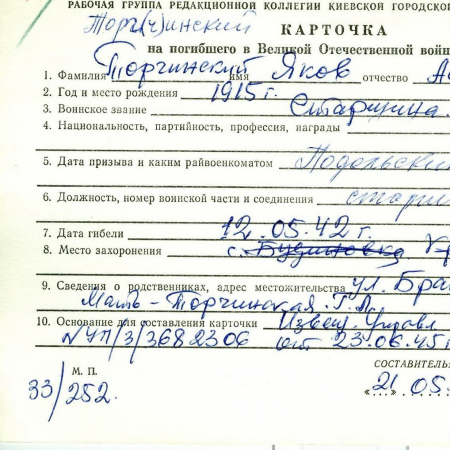 РАБОЧАЯ ГРУППА РЕДАКЦИОННОЙ КОЛЛЕГИИ КИЕВСКОЙ ГОРОДСКО
Торч(ч)инский
КАРТОЧКА
на погибшего в Великой Отечественной войн
1. Фамилия Торчинский имя Яков отчество
2. Год и место рождения 1915 г.
3. Воинское звание Старшина
4. Национальность, партийность, профессия, награды
5. Дата призыва и каким райвоенкоматом Подольский
6. Должность, номер воинской части и соединения стар
7. Дата гибели 12.05.42 г.
8. Место захоронения с.
9. Сведения о родственниках, адрес местожительства ул. Бра
Мать - Торчинская Г. Л.
10. Основание для составления карточки Извещ. Управл
№УП/3/3682306 от 23.06.45 г
М. П.
СОСТАВИТЕЛЬ
33/252.
"21" 05.